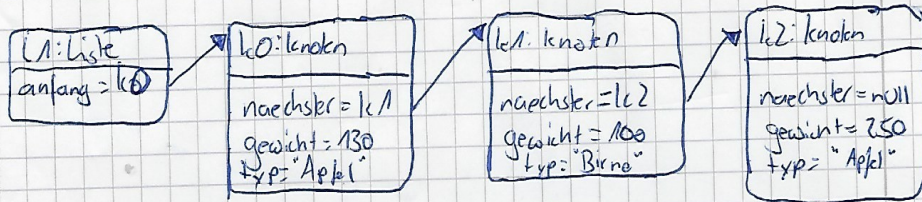 l1:Liste
anfang = k0
k0:knoten
naechster = k1
gewicht = 130
typ= "Apfel"
k1: knoten
naechster = k2
gewicht = 100
typ= "Birne"
k2: knoten
naechster = null
gewicht = 250
typ= "Apfel"